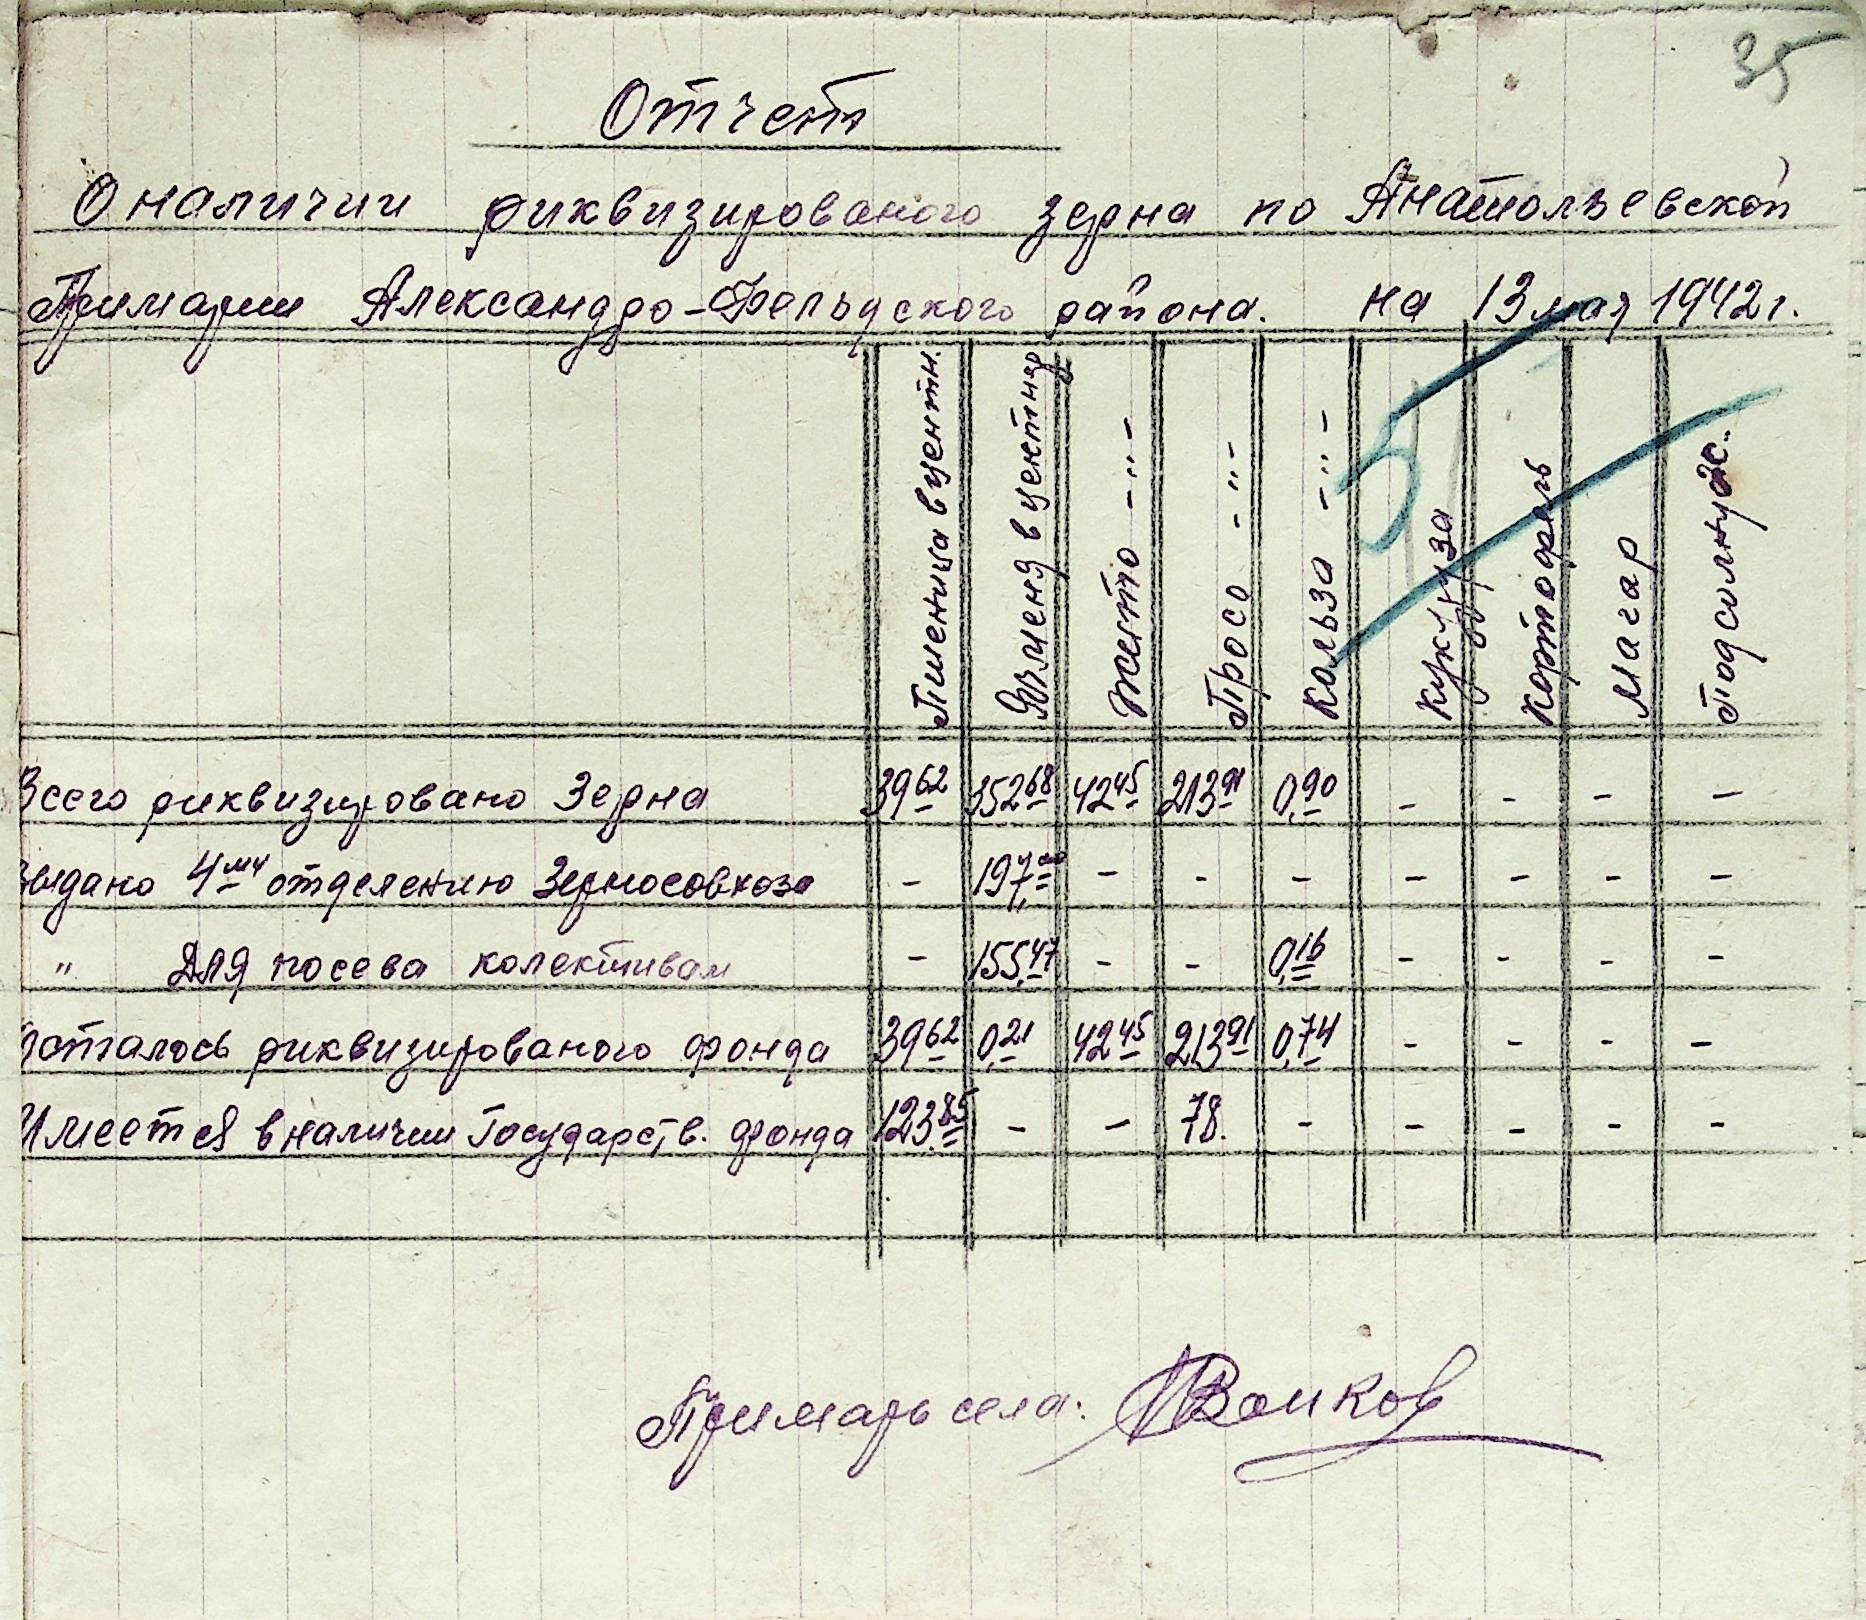 35
Отчет
О наличии риквизированого зерна по Анатольевской
Примарии Александро-Фельдского района. на 13 мая 1942 г.
Пшеница в центн. Ячменя в центнер Жито -"- Просо -"- Кольза -"- Кукуруза Картофель Магар Подсолнух.
5
Всего риквизировано Зерна 39 62 352 68 42 45 213 91 0,90 - - - -
Выдано 4му отделению Зерносовхоза - 197,00 - - - - - - -
" Для посева колективам - 155,47 - - 0,16 - - - -
Осталось риквизированого фонда 39 62 0,21 42 45 213 91 0,74 - - - -
Имеется в наличии Государств. фонда 123.85 - - 78. - - - - -
Примарь села: Волков